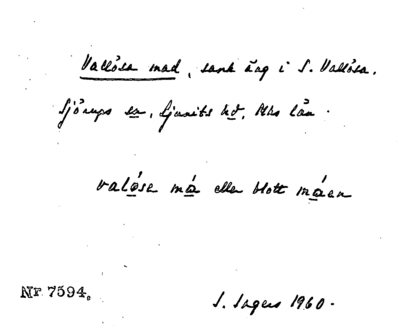 Vallåsa mad, sank äng i S. Vallåsa.
Sjörups sn, Ljunits hd, Mhs län.
valåse må eller blott måen
Nr 7594.
S. Ingers 1960.